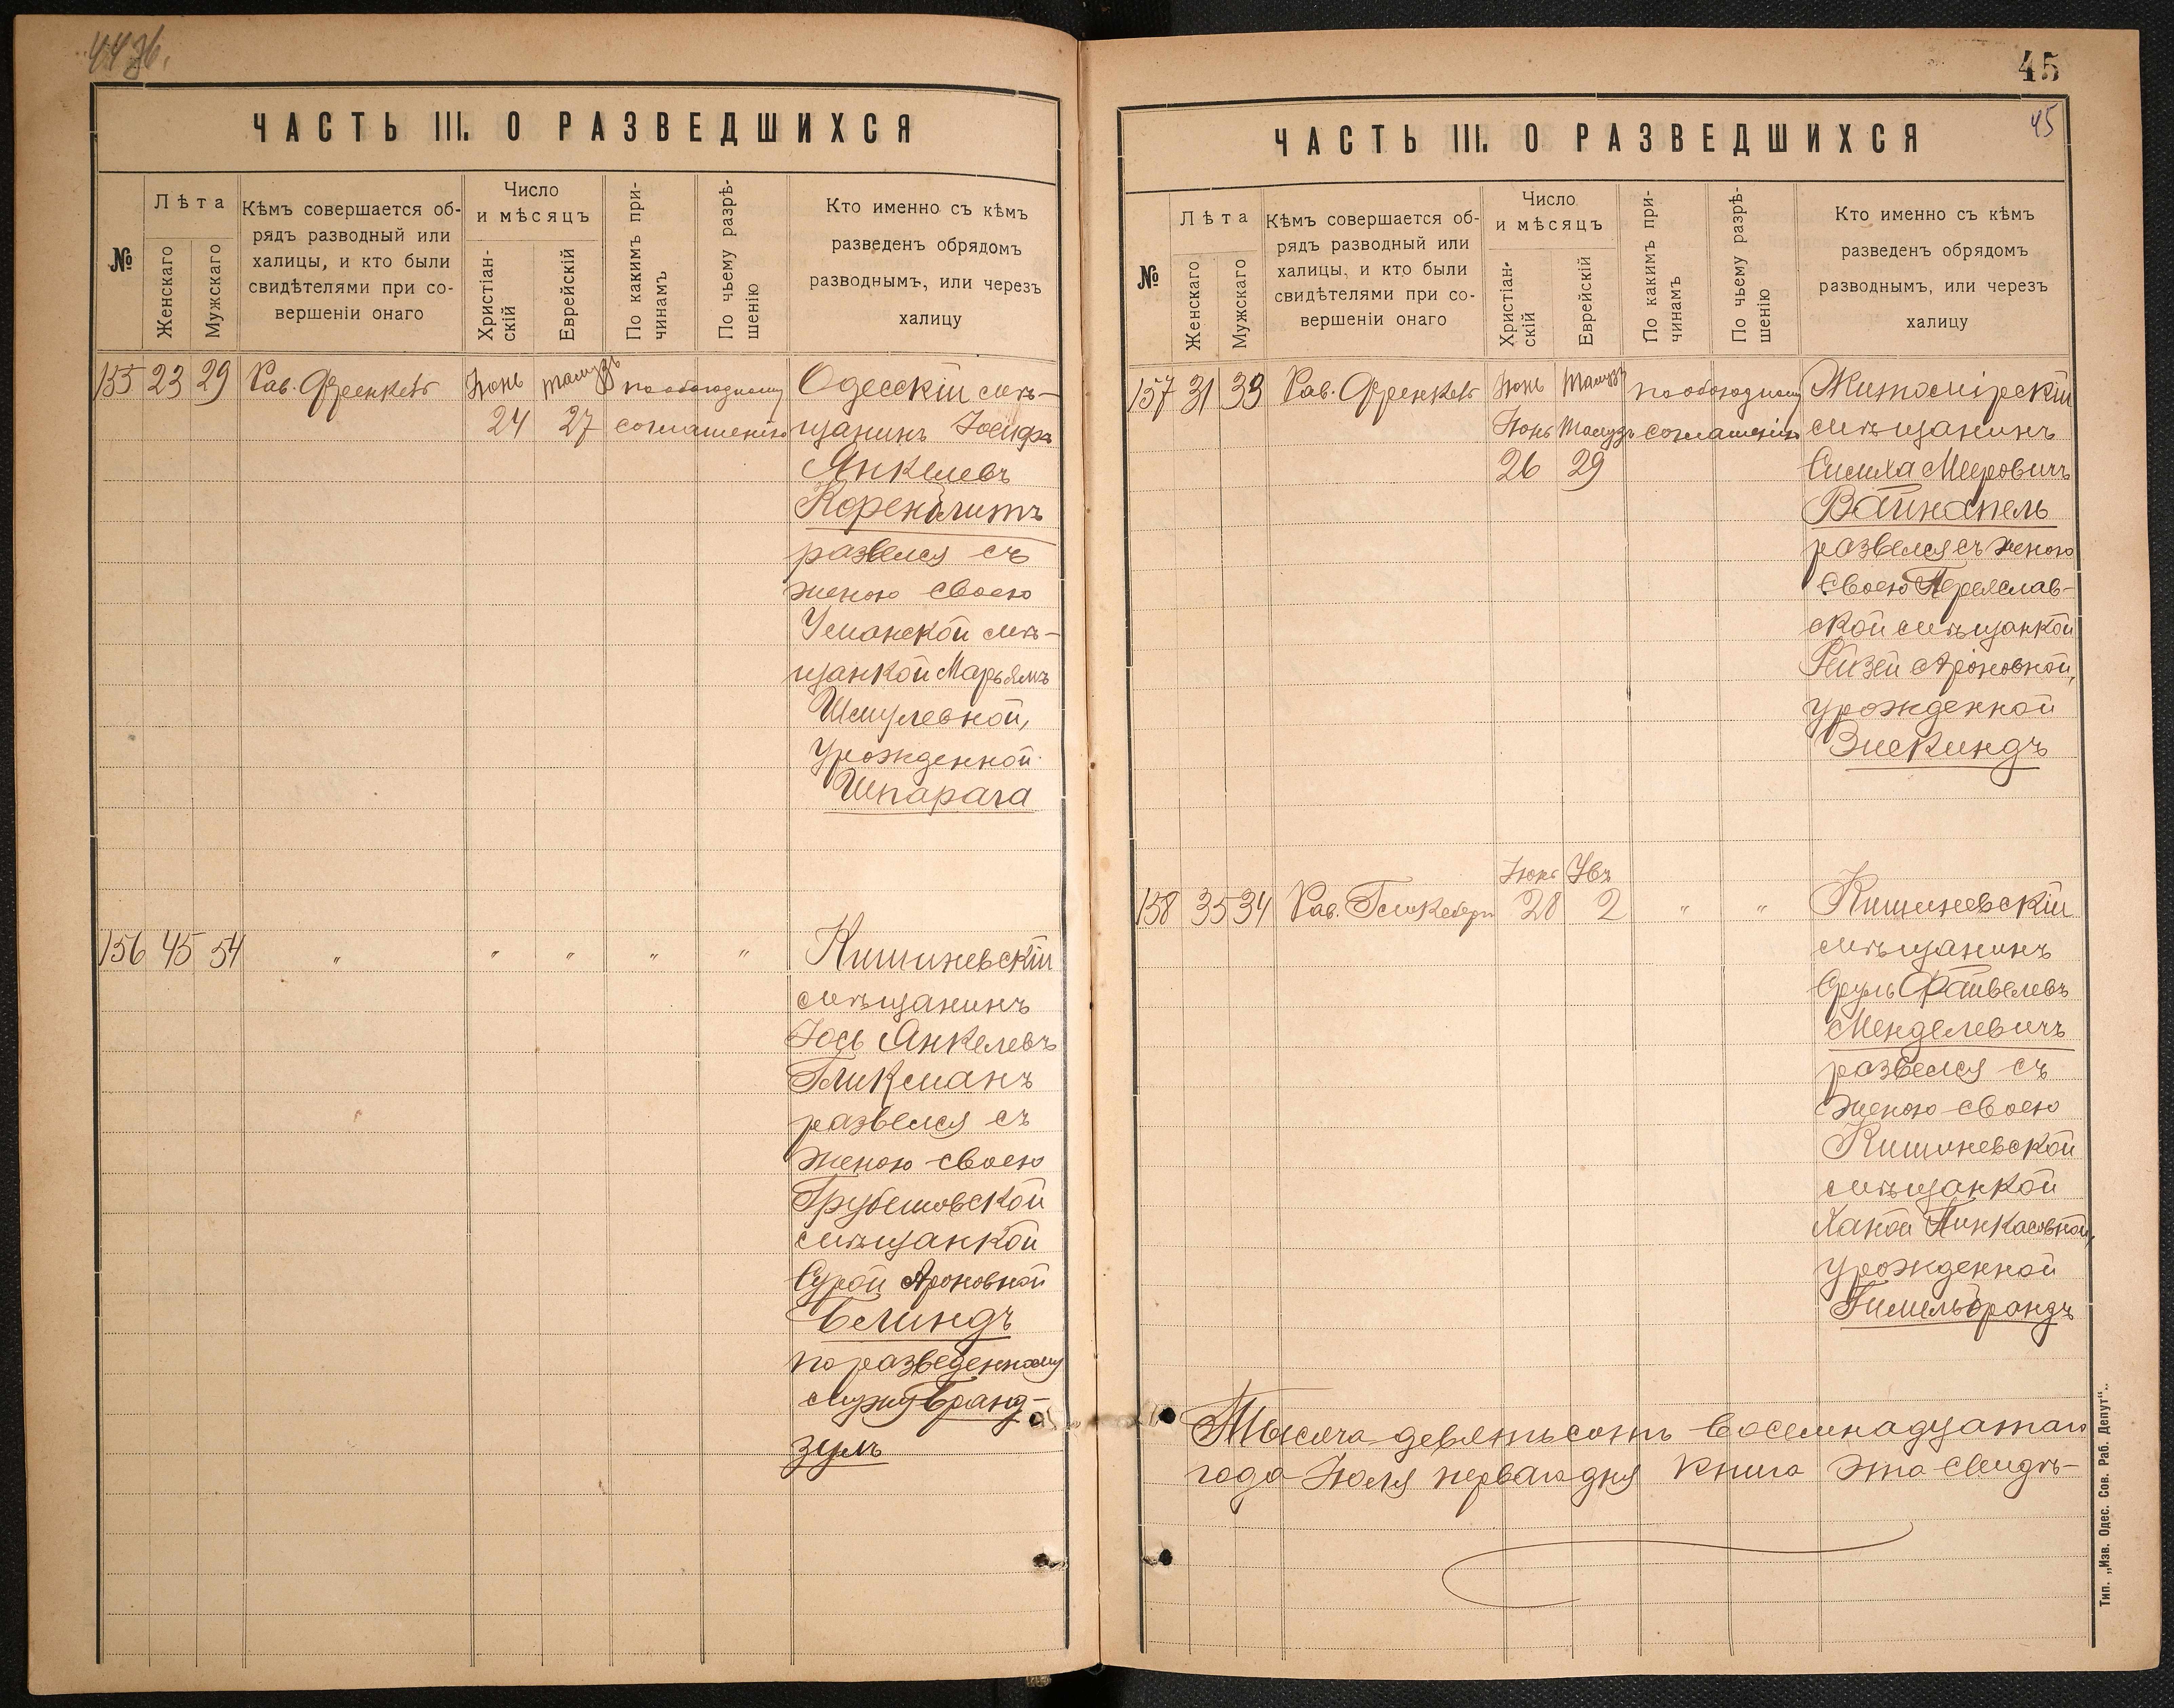 ЧАСТЬ III. О РАЗВЕДШИХСЯ
№
Лѣта
Женскаго
Мужскаго
Кѣмъ совершается об-
рядъ разводный или
халицы, и кто были
свидѣтелями при со-
вершеніи онаго
Число
и мѣсяцъ
Христіан-
скій
Еврейскій
По какимъ при-
чинамъ
По чьему разрѣ-
шенію
Кто именно съ кѣмъ
разведенъ обрядомъ
разводнымъ, или черезъ
халицу
155 23 29 Рав. Френкель Іюнь Тамузъ по обоюдному Одесскій мѣ-
24 27 соглашенію щанинъ Іосифъ
Янкелевъ
развелся съ
женою своею
Уманской мѣ-
щанкой Марьямъ
Шмулевной,
урожденной
Шпарага
156 45 54 " " " " " Кишиневскій
мѣщанинъ
Іось Янкелевъ
Гликманъ
развелся съ
женою своею
Грубешовской
мѣщанкой
Сурой Ароновной
Блиндъ
по разведенному
мужу Бранд-
зумъ
45
45
ЧАСТЬ III. О РАЗВЕДШИХСЯ
№
Лѣта
Женскаго
Мужскаго
Кѣмъ совершается об-
рядъ разводный или
халицы, и кто были
свидѣтелями при со-
вершеніи онаго
Число
и мѣсяцъ
Христіан-
скій
Еврейскій
По какимъ при-
чинамъ
По чьему разрѣ-
шенію
Кто именно съ кѣмъ
разведенъ обрядомъ
разводнымъ, или черезъ
халицу
157 31 33 Рав. Френкель Іюнь Тамузъ по обоюдному Житомірскій
Іюнь Тамузъ соглашенію мѣщанинъ
26 29 Симха Мееровичъ
Вайнапель
развелся съ женою
своею Переяслав-
ской мѣщанкой
Рейзей Ароновной,
урожденной
Зискиндъ
Іюнь Увъ
158 35 34 Рав. 28 2 " " Кишиневскій
мѣщанинъ
Сруль Файвелевъ
Менделевичъ
развелся съ
женою своею
Кишиневской
мѣщанкой
Ханой Пинкасовной,
урожденной
Гимельбрандъ
Тысяча девятьсотъ восемнадцатаго
года Іюля перваго дня книга эта свидѣ-
Тип. „Изв. Одес. Сов. Раб. Депут“.